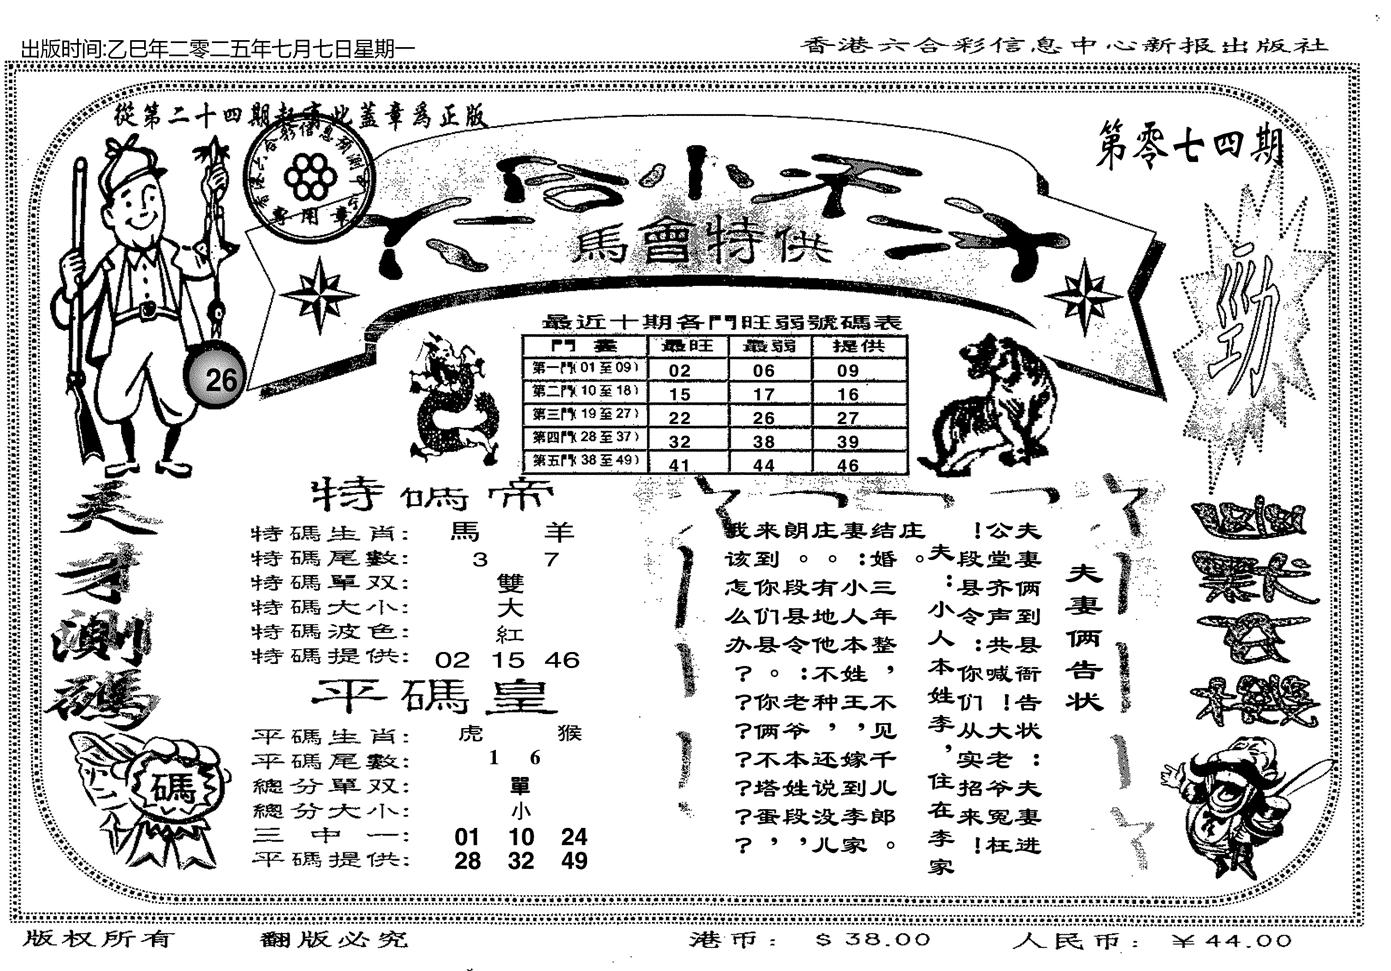 出版时间:乙巳年二零二五年七月七日星期一
香港六合彩信息中心新报出版社
從第二十四期起有此蓋章爲正版
專用章
第零七四期
六合小天才
馬會特供
勁
26
最近十期各門旺弱號碼表
門 最旺 最弱 提供
第一門(01至09) 02 06 09
第二門(10至18) 15 17 16
第三門(19至27) 22 26 27
第四門(28至37) 32 38 39
第五門(38至49) 41 44 46
天才測碼
碼
特碼帝
特碼生肖: 馬 羊
特碼尾數: 3 7
特碼單双: 雙
特碼大小: 大
特碼波色: 紅
特碼提供: 02 15 46
平碼皇
平碼生肖: 虎 猴
平碼尾數: 1 6
總分單双: 單
總分大小: 小
三中一: 01 10 24
平碼提供: 28 32 49
夫妻俩告状
夫妻俩到县衙告状:夫妻进
公堂齐声共喊!大老爷冤枉
!段县令:你们从实招来!
夫:小人本姓李,住在李家
庄。三年整,不见千儿郎。
结婚
妻:小人本姓王,嫁到李家
庄有地他不种,还说没儿
朗。段县令:老爷本姓段,
来到你们县。你俩不塔蛋,
我该怎么办????????
版权所有
翻版必究
港币: $38.00
人民币: ￥44.00